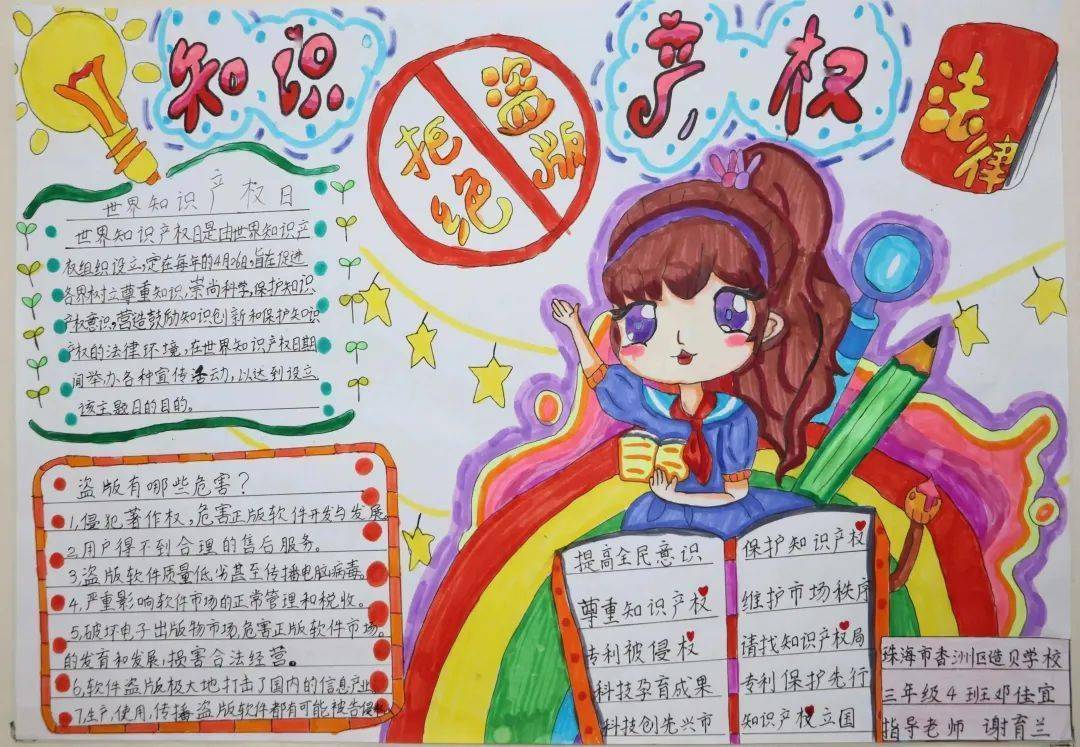 知识
产权
拒绝
盗版
法律
世界知识产权日
世界知识产权日是由世界知识产
权组织设立,定在每年的4月26日,旨在促进
各界树立尊重知识,崇尚科学,保护知识
产权意识,营造鼓励知识创新和保护知识
产权的法律环境,在世界知识产权日期
间举办各种宣传活动,以达到设立
该主题日的目的。
盗版有哪些危害?
1.侵犯著作权,危害正版软件开发与发展
2.用户得不到合理的售后服务。
3.盗版软件质量低劣甚至传播电脑病毒。
4.严重影响软件市场的正常管理和税收。
5.破坏电子出版物市场,危害正版软件市场。
的发育和发展,损害合法经营。
6.软件盗版极大地打击了国内的信息产业
7.生产,使用,传播盗版软件都有可能被告
提高全民意识
尊重知识产权
专利被侵权
科技孕育成果
科技创先兴市
保护知识产权
维护市场秩序
请找知识产权局
专利保护先行
知识产权立国
珠海市香洲区造贝学校
三年级4班邓佳宜
指导老师 谢育兰